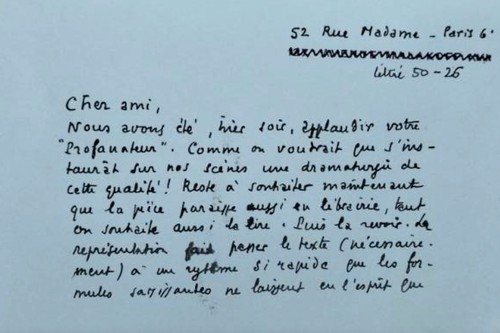 52 Rue Madame - Paris 6e
Littré 50-26
Cher ami,
Nous avons été, hier soir, applaudir votre
"Profanateur". Comme on voudrait que s'ins-
taurât sur nos scènes une dramaturgie de
cette qualité! Reste à souhaiter maintenant
que la pièce paraisse aussi en librairie, tant
on souhaite aussi la lire. Puis la revoir. La
représentation fait passer le texte (nécessaire-
ment) à un rythme si rapide que les for-
mules saisissantes ne laissent en l'esprit que